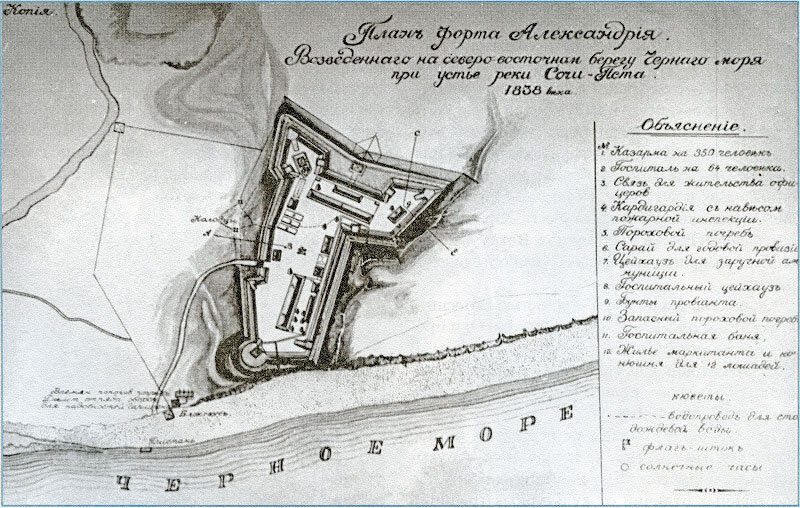 Копія
Планъ форта Александрія.
Возведеннаго на северо восточнам берегу Чернаго моря
при устье реки Сочи-Пста.
1838 века.
Объясненіе.
№
1. Казарма на 350 человекъ
2. Госпиталь на 64 человека.
3. Связь для жительства офи
церовъ
4. Кардигардія съ навесом
пожарной инспекции.
5. Пороховой погребъ
6. Сарай для годовой провизіи
7. Цейхаузъ для заручной ам
муниціи.
8. Госпитальный цейхаузъ
9. Бунты провіанта.
10. Запасный пороховой погреб
11. Госпитальная баня,
12. Жилье маркитанта и ко
нюшня для 12 лошадей.
кюветы
водопроводъ для сто
дождевой воды
флагъ-штокъ
солнечные часы
с
А
е
Блокгаузъ
Пристань
ЧЕРНОЕ МОРЕ